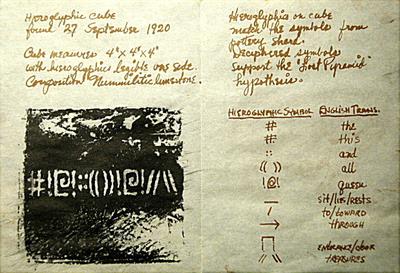 Hieroglyphic cube
found 27 September 1920
Cube measures 4"x 4"x 4"
with hieroglyphics legible one side.
Composition: Nummilitic limestone.
Hieroglyphics on cube
match the symbols from
pottery shard.
Deciphered symbols
support the "Lost Pyramid"
hypothesis.
HIEROGLYPHIC SYMBOL ENGLISH TRANS.
# the
# this
:: and
(( )) all
!@! queen
— sit/lies/rests
/ to/toward
→ through
⊓ ENTRANCE/DOOR
// \\ TREASURES
#!@!::(())!@!//\\